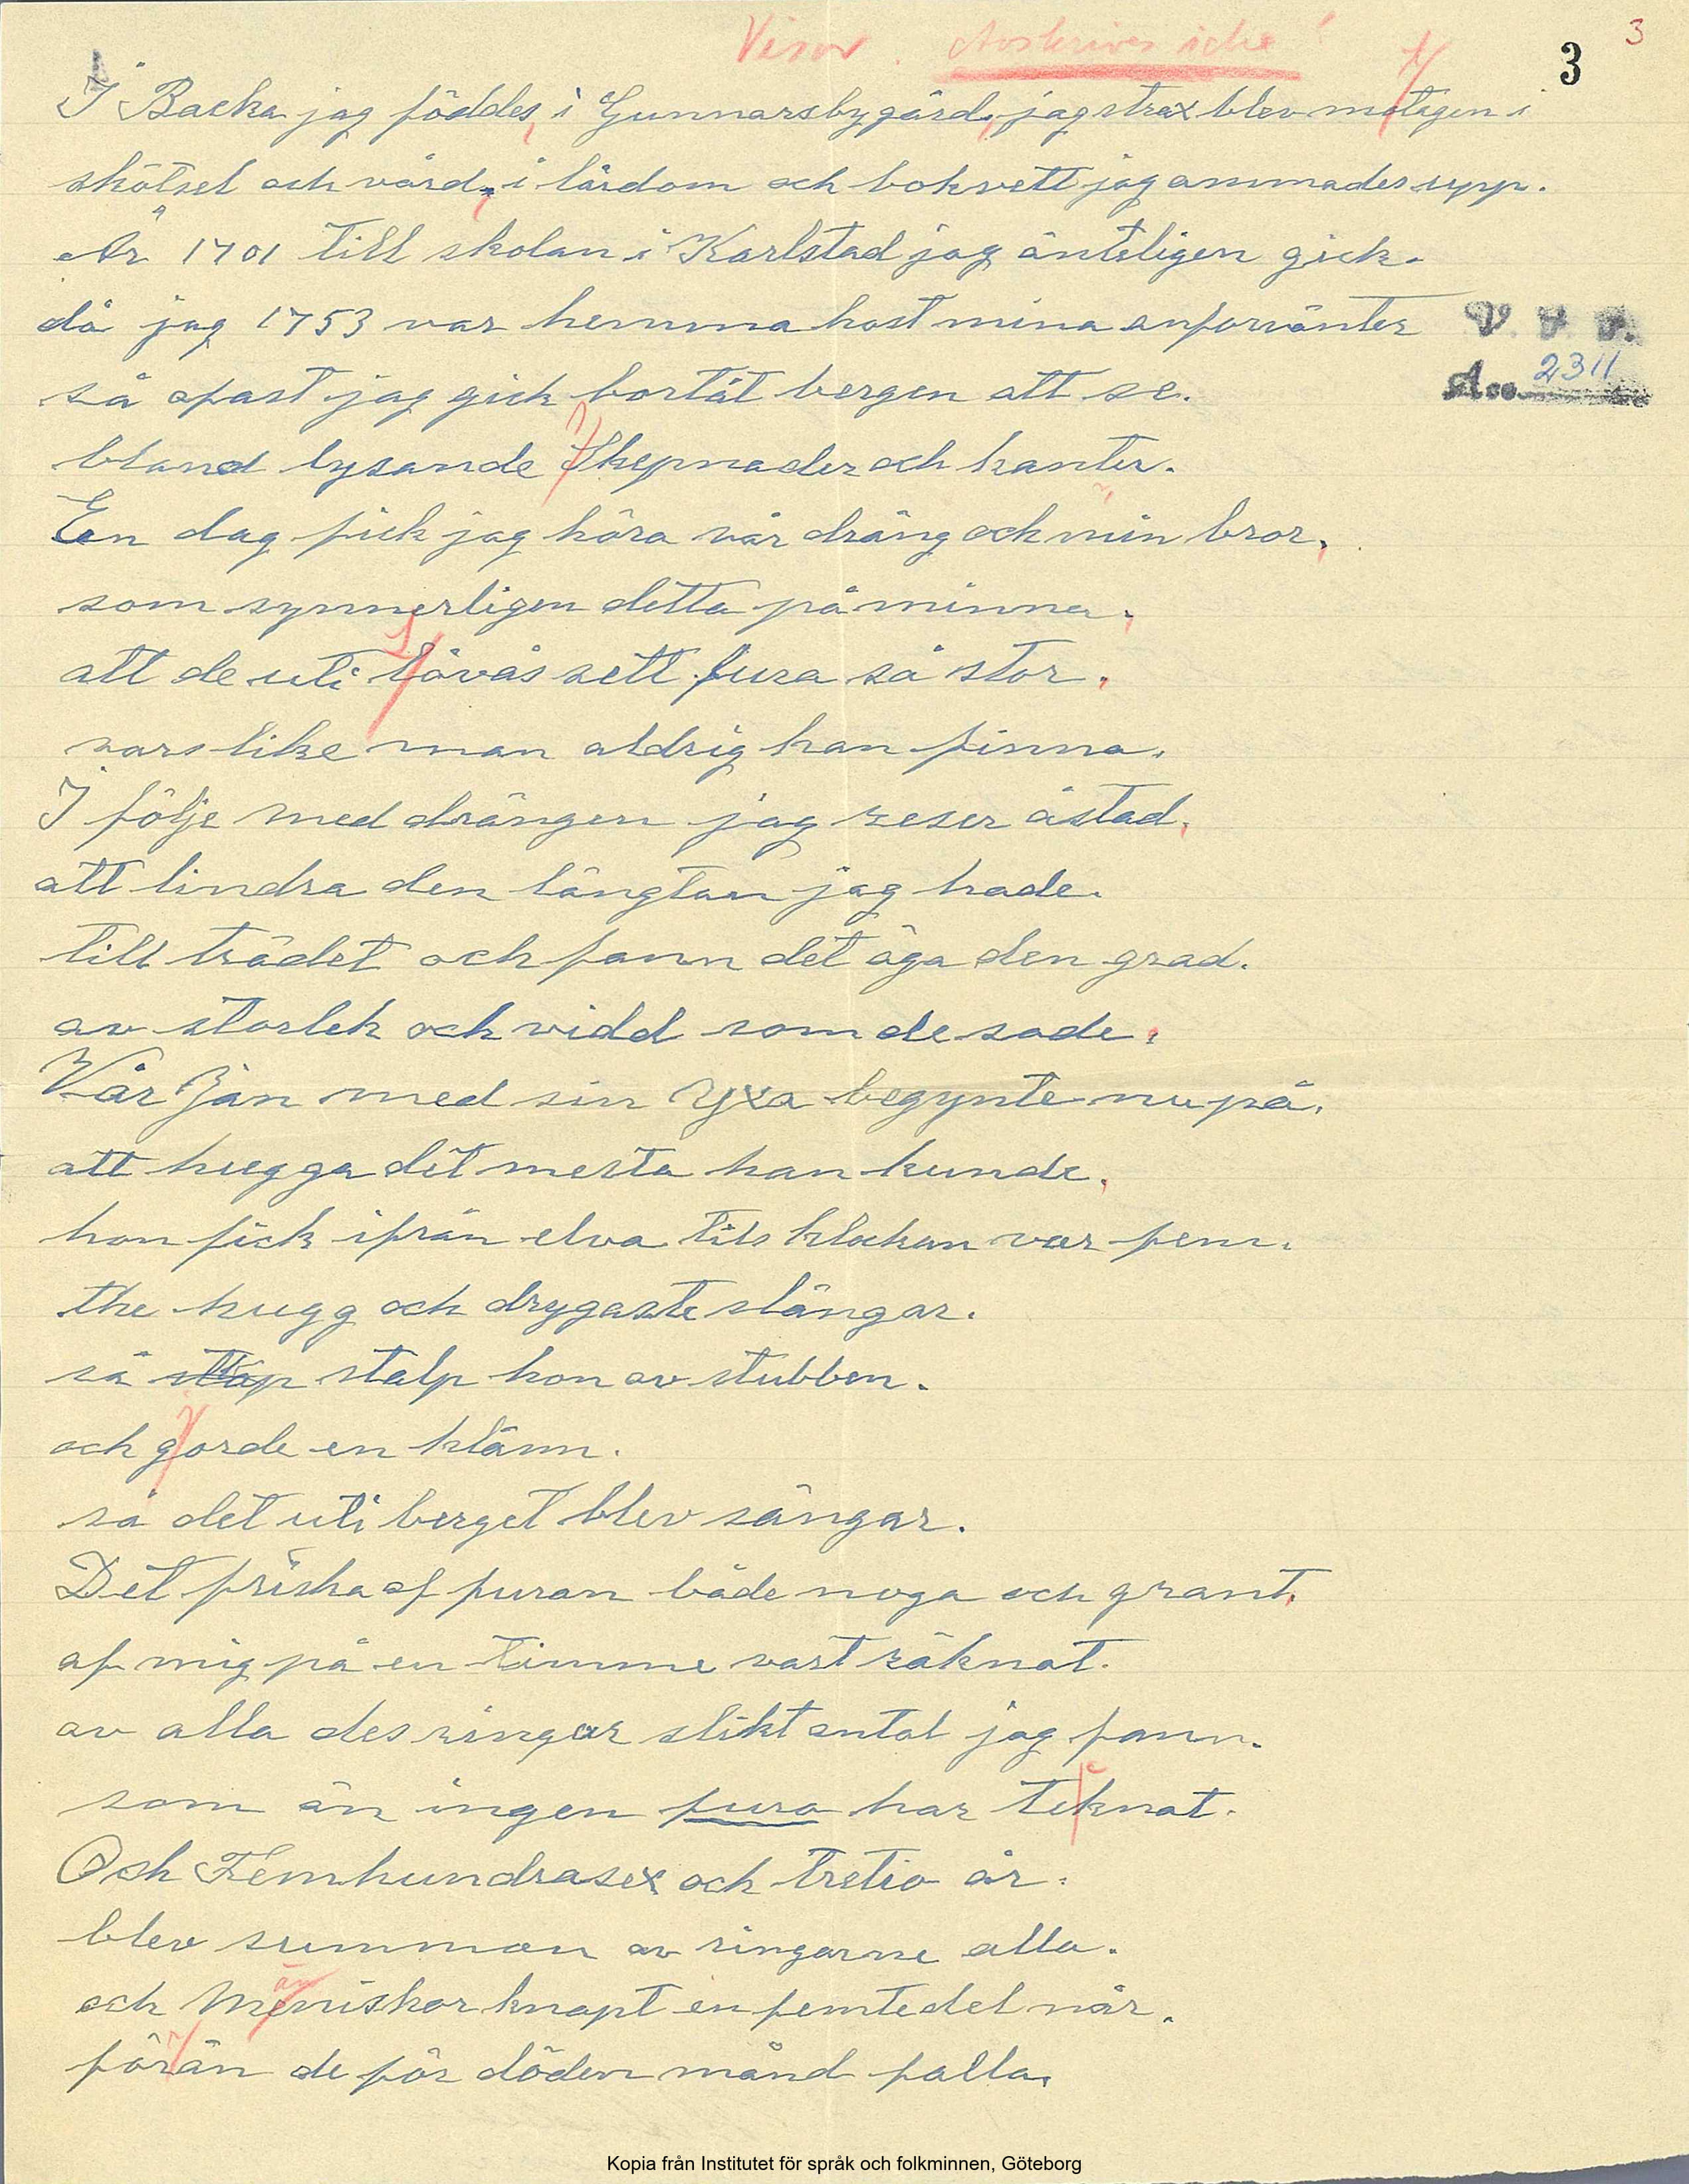 Visor. Avskrives icke!
3
3
I Backa jag föddes, i Gunnarsbygård, jag strax blev motagen i
skötsel och vård, i lärdom och bokvett jag ammades upp.
År 1701 till skolan i Karlstad jag änteligen gick.
då jag 1753 var hemma host mina anforvänter
V. F. F.
så ofast jag gick bortåt bergen att se.
Acc. 2311
bland lysande Skepnader och kanter.
En dag fick jag höra vår dräng och min bror,
som synnerligen detta på minner,
att de uti lövås sett fura så stor,
vars like man aldrig kan finna.
I följe med drängen jag reser åstad,
att lindra den längtan jag hade.
till trädet och fann det äga den grad.
av storlek och vidd som de sade.
Vår Jan med sin Yxa begynte nu på.
att hugga det mesta han kunde,
hon fick ifrån elva tils klockan var fem.
the hugg och drygaste slängar.
så stalp hon av stubben.
och gorde en kläm.
så det uti berget blev sängar.
Det friska af furan både noga och grant,
af mig på en timme vart räknat.
av alla des ringar slikt antal jag fann.
som än ingen fura har teknat.
Och Femhundrasex och tretio år.
blev summan av ringarne alla.
och Meniskor knapt en femtedel når.
än
förän de för döden månd falla.
Kopia från Institutet för språk och folkminnen, Göteborg